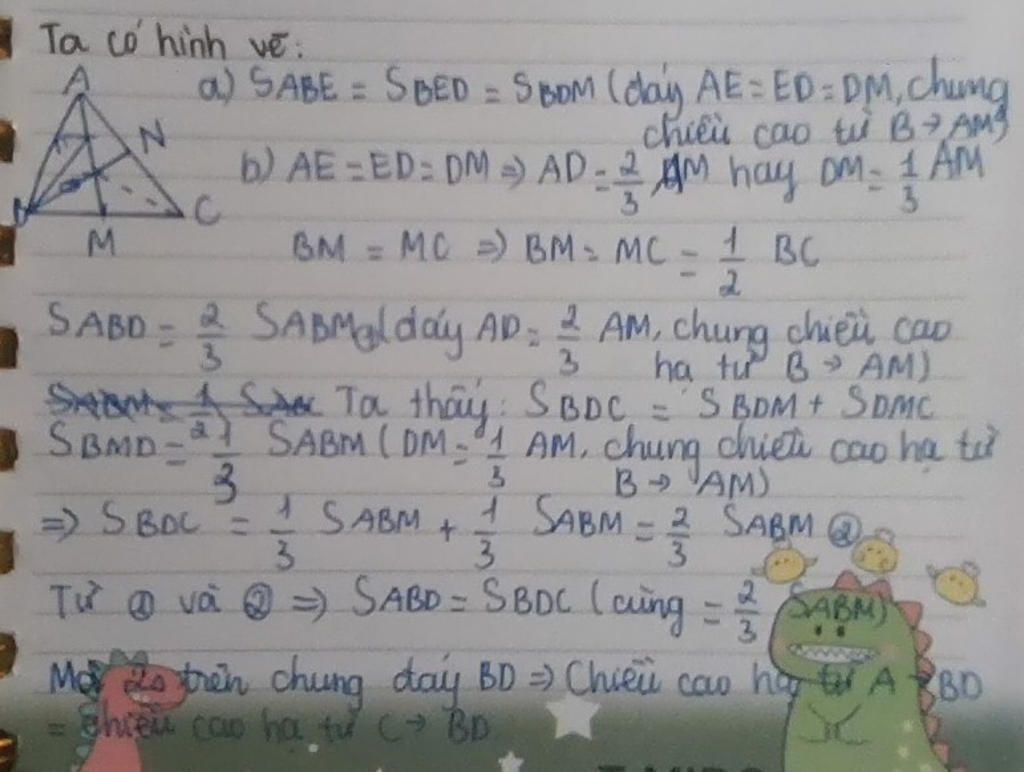 Ta có hình vẽ:
A
N
C
M
a) SABE = SBED = SBDM (đáy AE = ED = DM, chung
chiều cao từ B → AM)
b) AE = ED = DM => AD = 2/3 AM hay DM = 1/3 AM
BM = MC => BM = MC = 1/2 BC
SABD = 2/3 SABM (đáy AD = 2/3 AM, chung chiều cao
hạ từ B → AM)
Ta thấy: SBDC = SBDM + SDMC
SBMD = 1/3 SABM (DM = 1/3 AM, chung chiều cao hạ từ
B → AM)
=> SBDC = 1/3 SABM + 1/3 SABM = 2/3 SABM ②
Từ ① và ② => SABD = SBDC (cùng = 2/3 SABM)
Mà 2Δ trên chung đáy BD => Chiều cao hạ từ A → BD
= chiều cao hạ từ C → BD